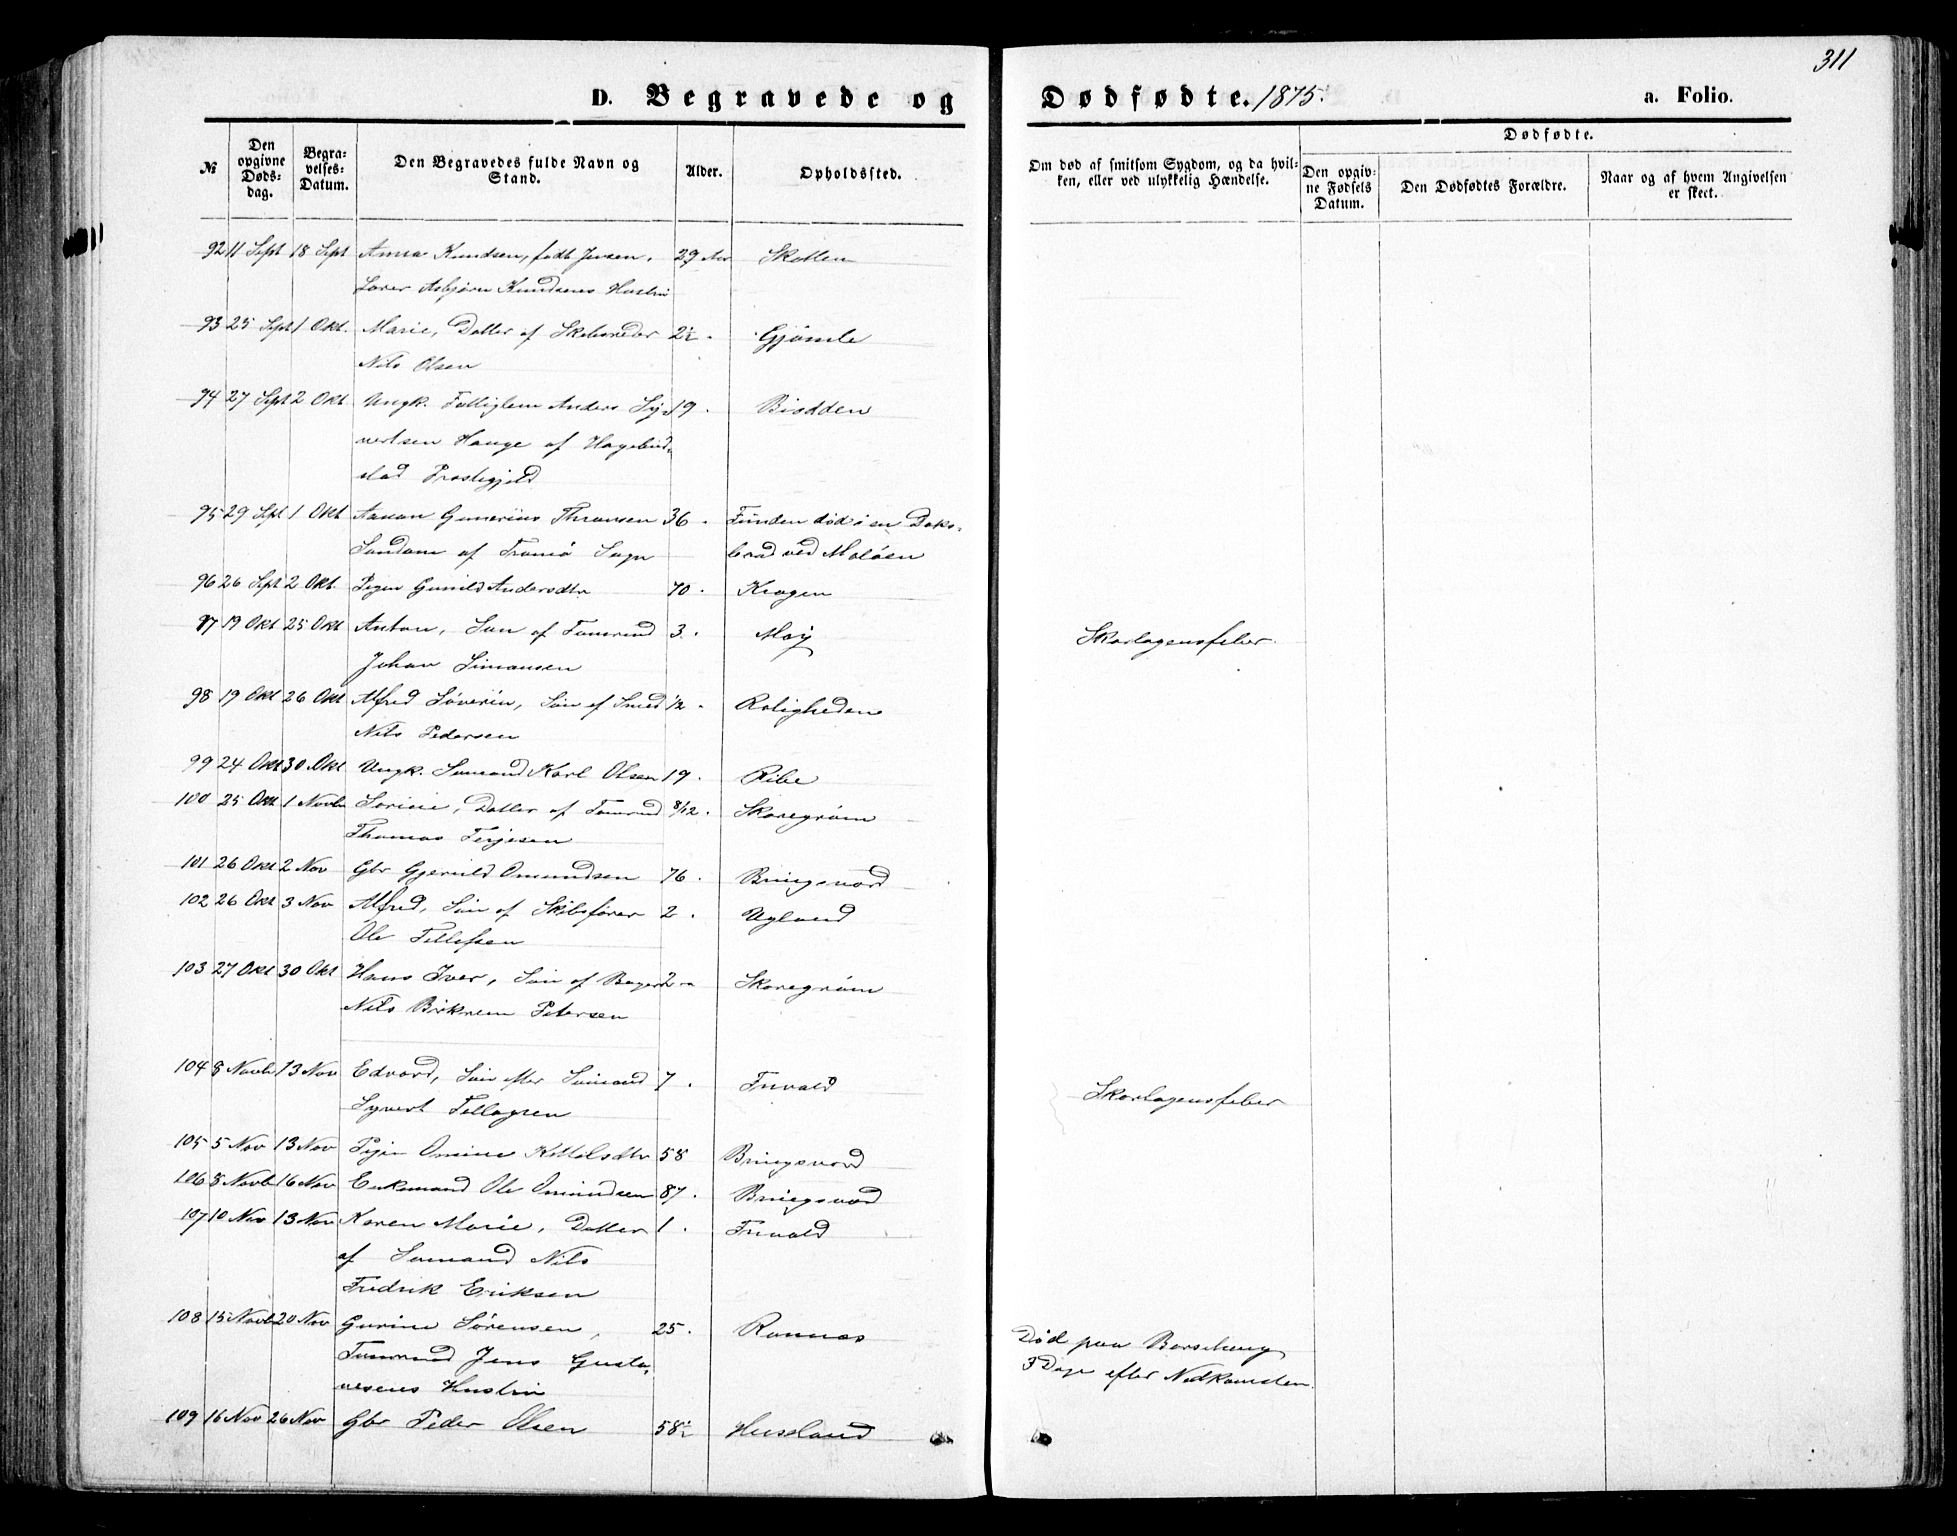 311
D. Begravede og Dødfødte. 1875.
a. Folio.
№
Den opgivne Døds-dag.
Begra-velses-Datum.
Den Begravedes fulde Navn og Stand.
Alder.
Opholdssted.
Om død af smitsom Sygdom, og da hvil-ken, eller ved ulykkelig Hændelse.
Dødfødte.
Den opgiv-ne Fødsels Datum.
Den Dødfødtes Forældre.
Naar og af hvem Angivelsen er skeet.
92 11 Sept 18 Sept Anna Knudsen, født Jensen, 29 Aar
Asbjørn Knudsens Hustru
93 25 Sept 1 Okt. Marie, Datter af Skibsreder 2½ Gjømle
Nils Olsen
94 27 Sept 2 Okt Ungk. Fattiglem Anders Sy- 19. Biodden
vertsen Hauge af Hægebod-
stad Præstegjeld
95 29 Sept 1 Okt Gunerius Thronsen 36. Funden død i en Doks-
af Tromø Sogn baad ved Moløen
96 26 Sept 2 Okt Pigen Gunild Andersdtr 70. Kragen
97 19 Okt 25 Okt Anton, Søn af Tømmd 3. Moy Skarlagensfeber
Johan Simonsen
98 19 Okt 26 Okt Alfred Søverin, Søn af Smed ½. Roligheden
Nils Pedersen
99 24 Okt 30 Okt Ungk. Sømand Karl Olsen 19. Ribe
100 25 Okt 1 Novbr Sørine, Datter af Tømmd 8/12. Skaregrøm
Thomas Terjesen
101 26 Okt 2 Nov Gbr Gjeruld Omundsen 76. Bringsvord
102 26 Okt 3 Nov Alfred, Søn af Skibsfører 2. Ugland
Ole Tellefsen
103 27 Okt 30 Okt Hans Iver, Søn af Bager 2 Skaregrøm
Nils Petersen
104 8 Novbr 13 Nov Edvard, Søn efter Sømand 7. Frivold Skarlagensfeber
Syvert Tellagsen
105 5 Nov 13 Nov Pigen Omine Kittelsdtr 58 Bringsvord
106 8 Novbr 16 Nov Enkemand Ole Omundsen 87. Bringsvord
107 10 Nov 13 Nov Karen Marie, Datter 1. Frivold
af Sømand Nils
Fredrik Eriksen
108 15 Novbr 20 Nov Gurine Sørensen, 25. Rønnes Død paa Barselseng
Tømmermd Jens Gusta- 3 Dage efter Nedkomsten.
vesens Hustru
109 16 Nov 26 Nov Gbr Peder Olsen 58½ Hessland